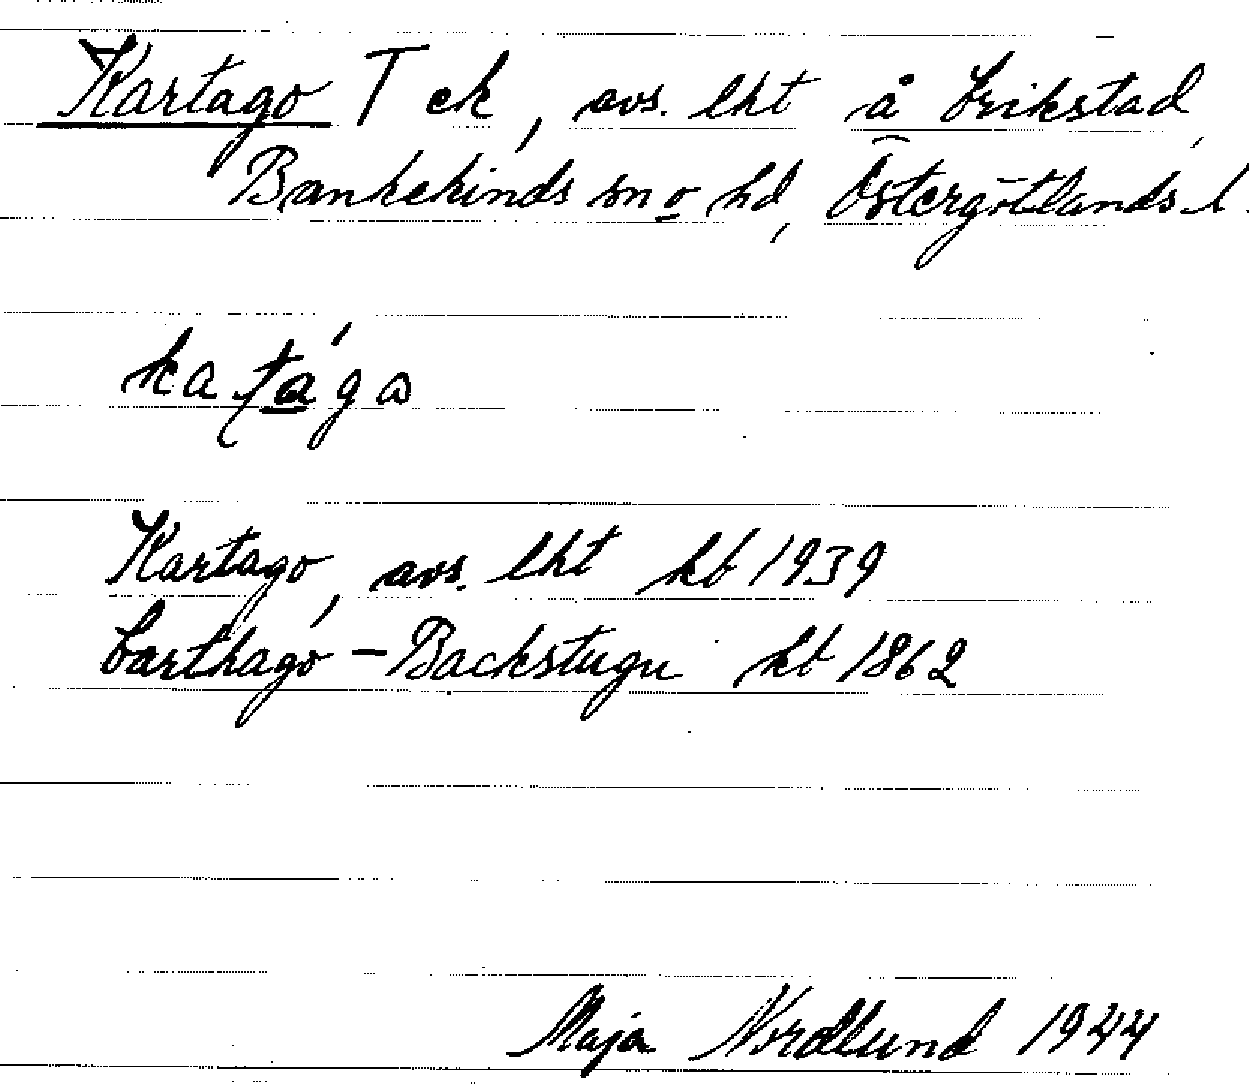 Kartago T ek, avs. lht å Erikstad,
Bankekinds sn o hd, Östergötlands l.
Kartago, avs. lht kb 1939
Carthago - Backstugu kb 1862
Maja Nordlund 1944